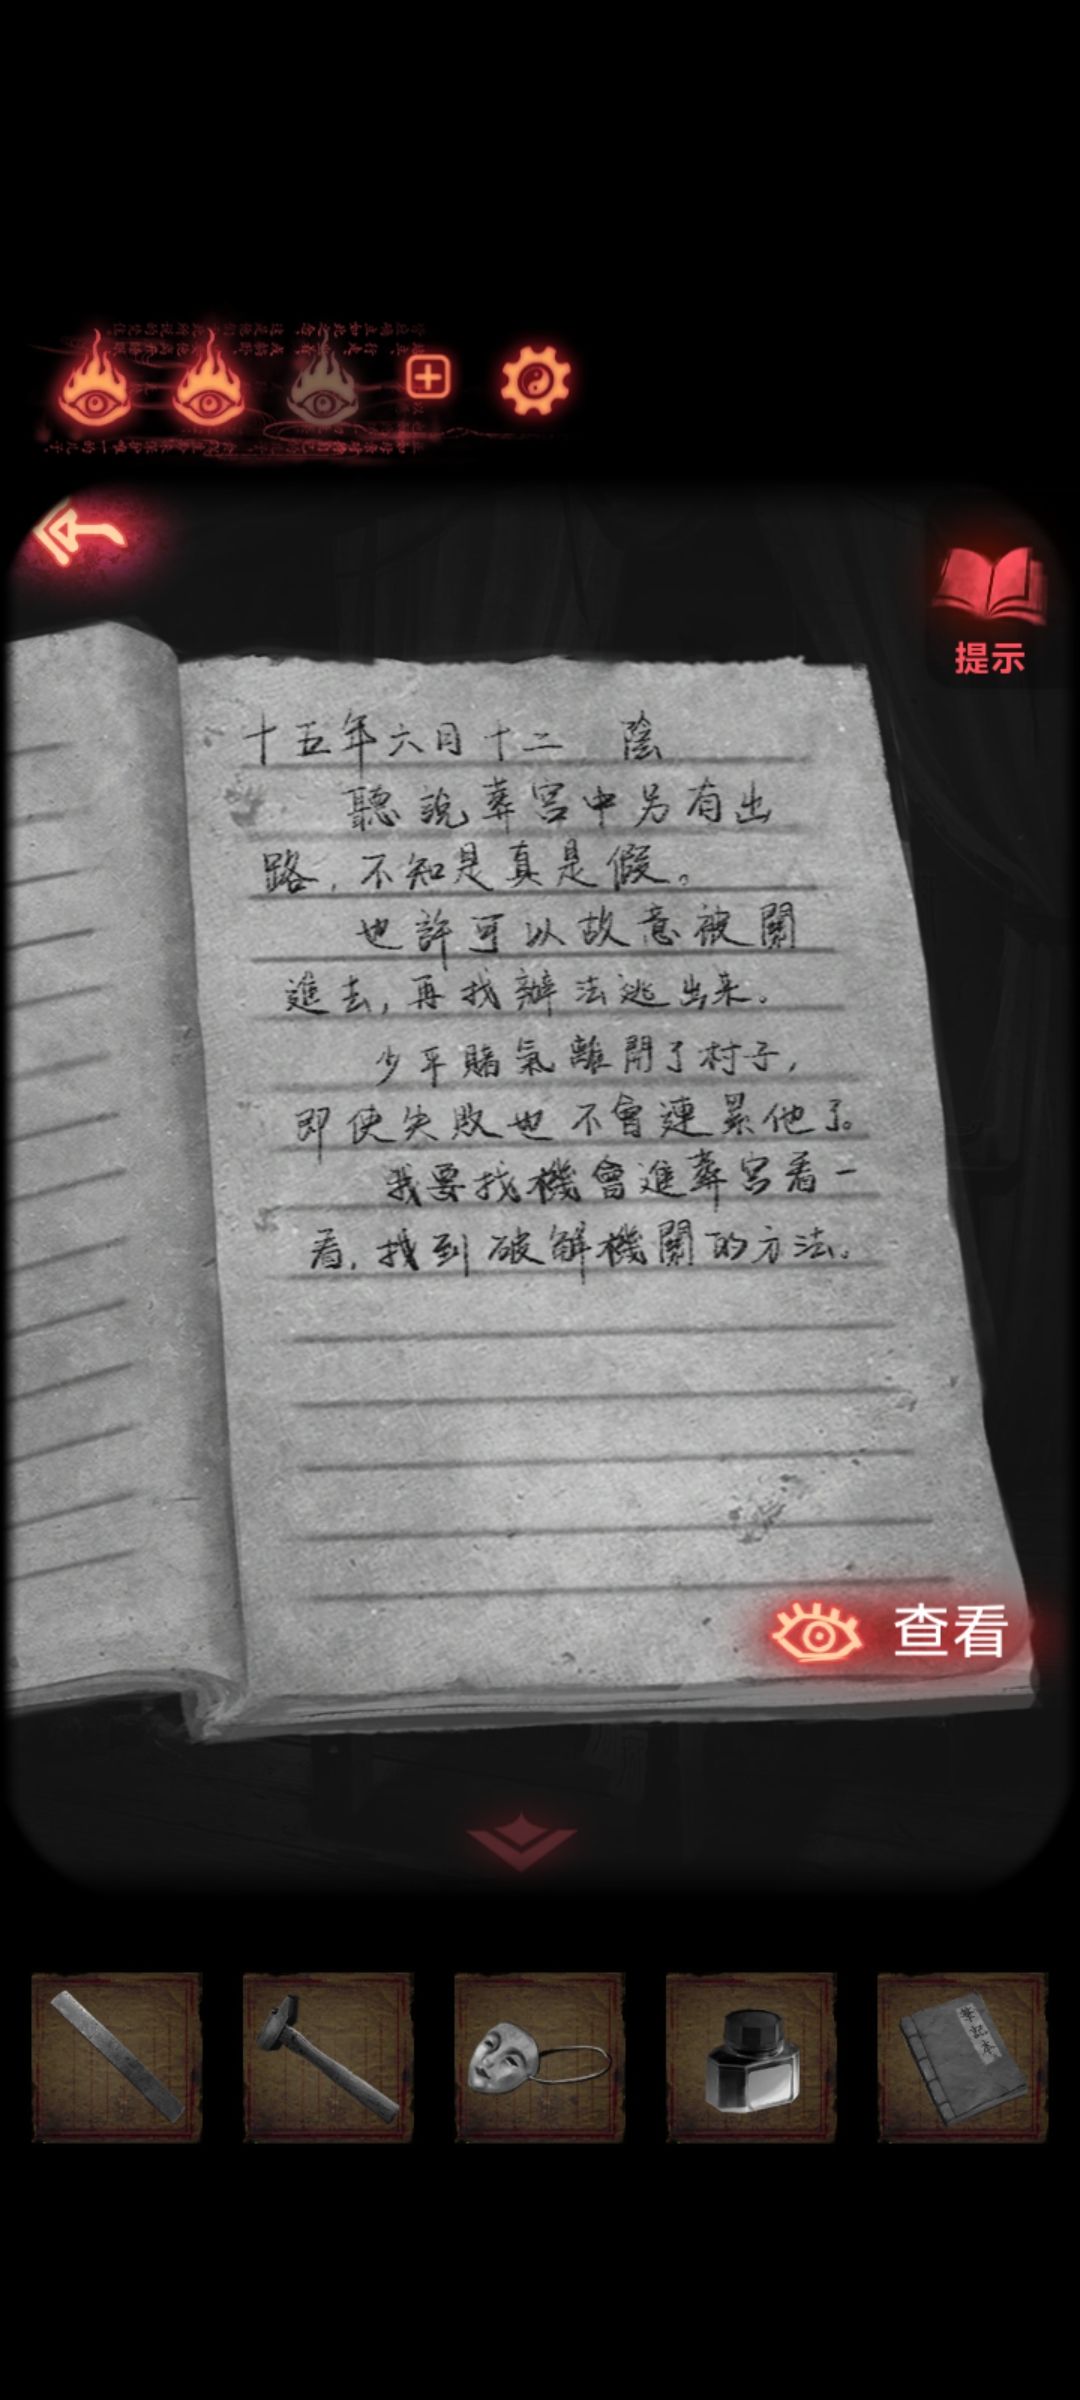 提示
十五年六月十二 陰
聽說葬宮中另有出
路，不知是真是假。
也許可以故意被關
進去，再找辦法逃出来。
少平賭氣離開了村子，
即使失敗也不會連累他了。
我要找機會進葬宮看一
看，找到破解機關的方法。
查看
筆記本